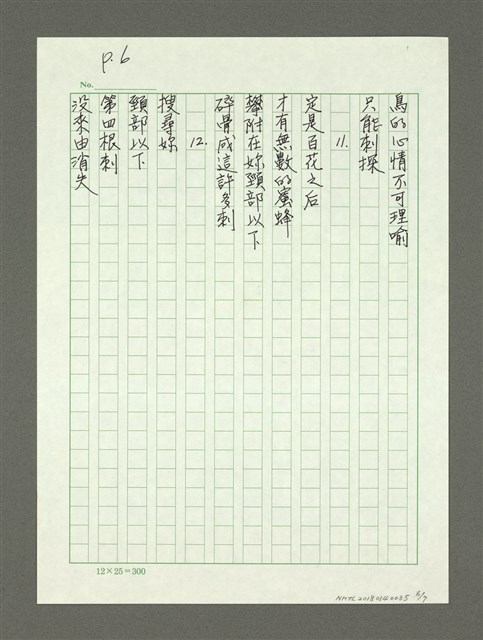 p.6
No.
鳥的心情不可理喻
只能刺探
11.
定是百花之后
才有無數的蜜蜂
攀附在妳頸部以下
碎骨成這許多刺
12.
搜尋妳
頸部以下
第四根刺
沒來由消失
12×25=300
NMTL20180140035 6/7